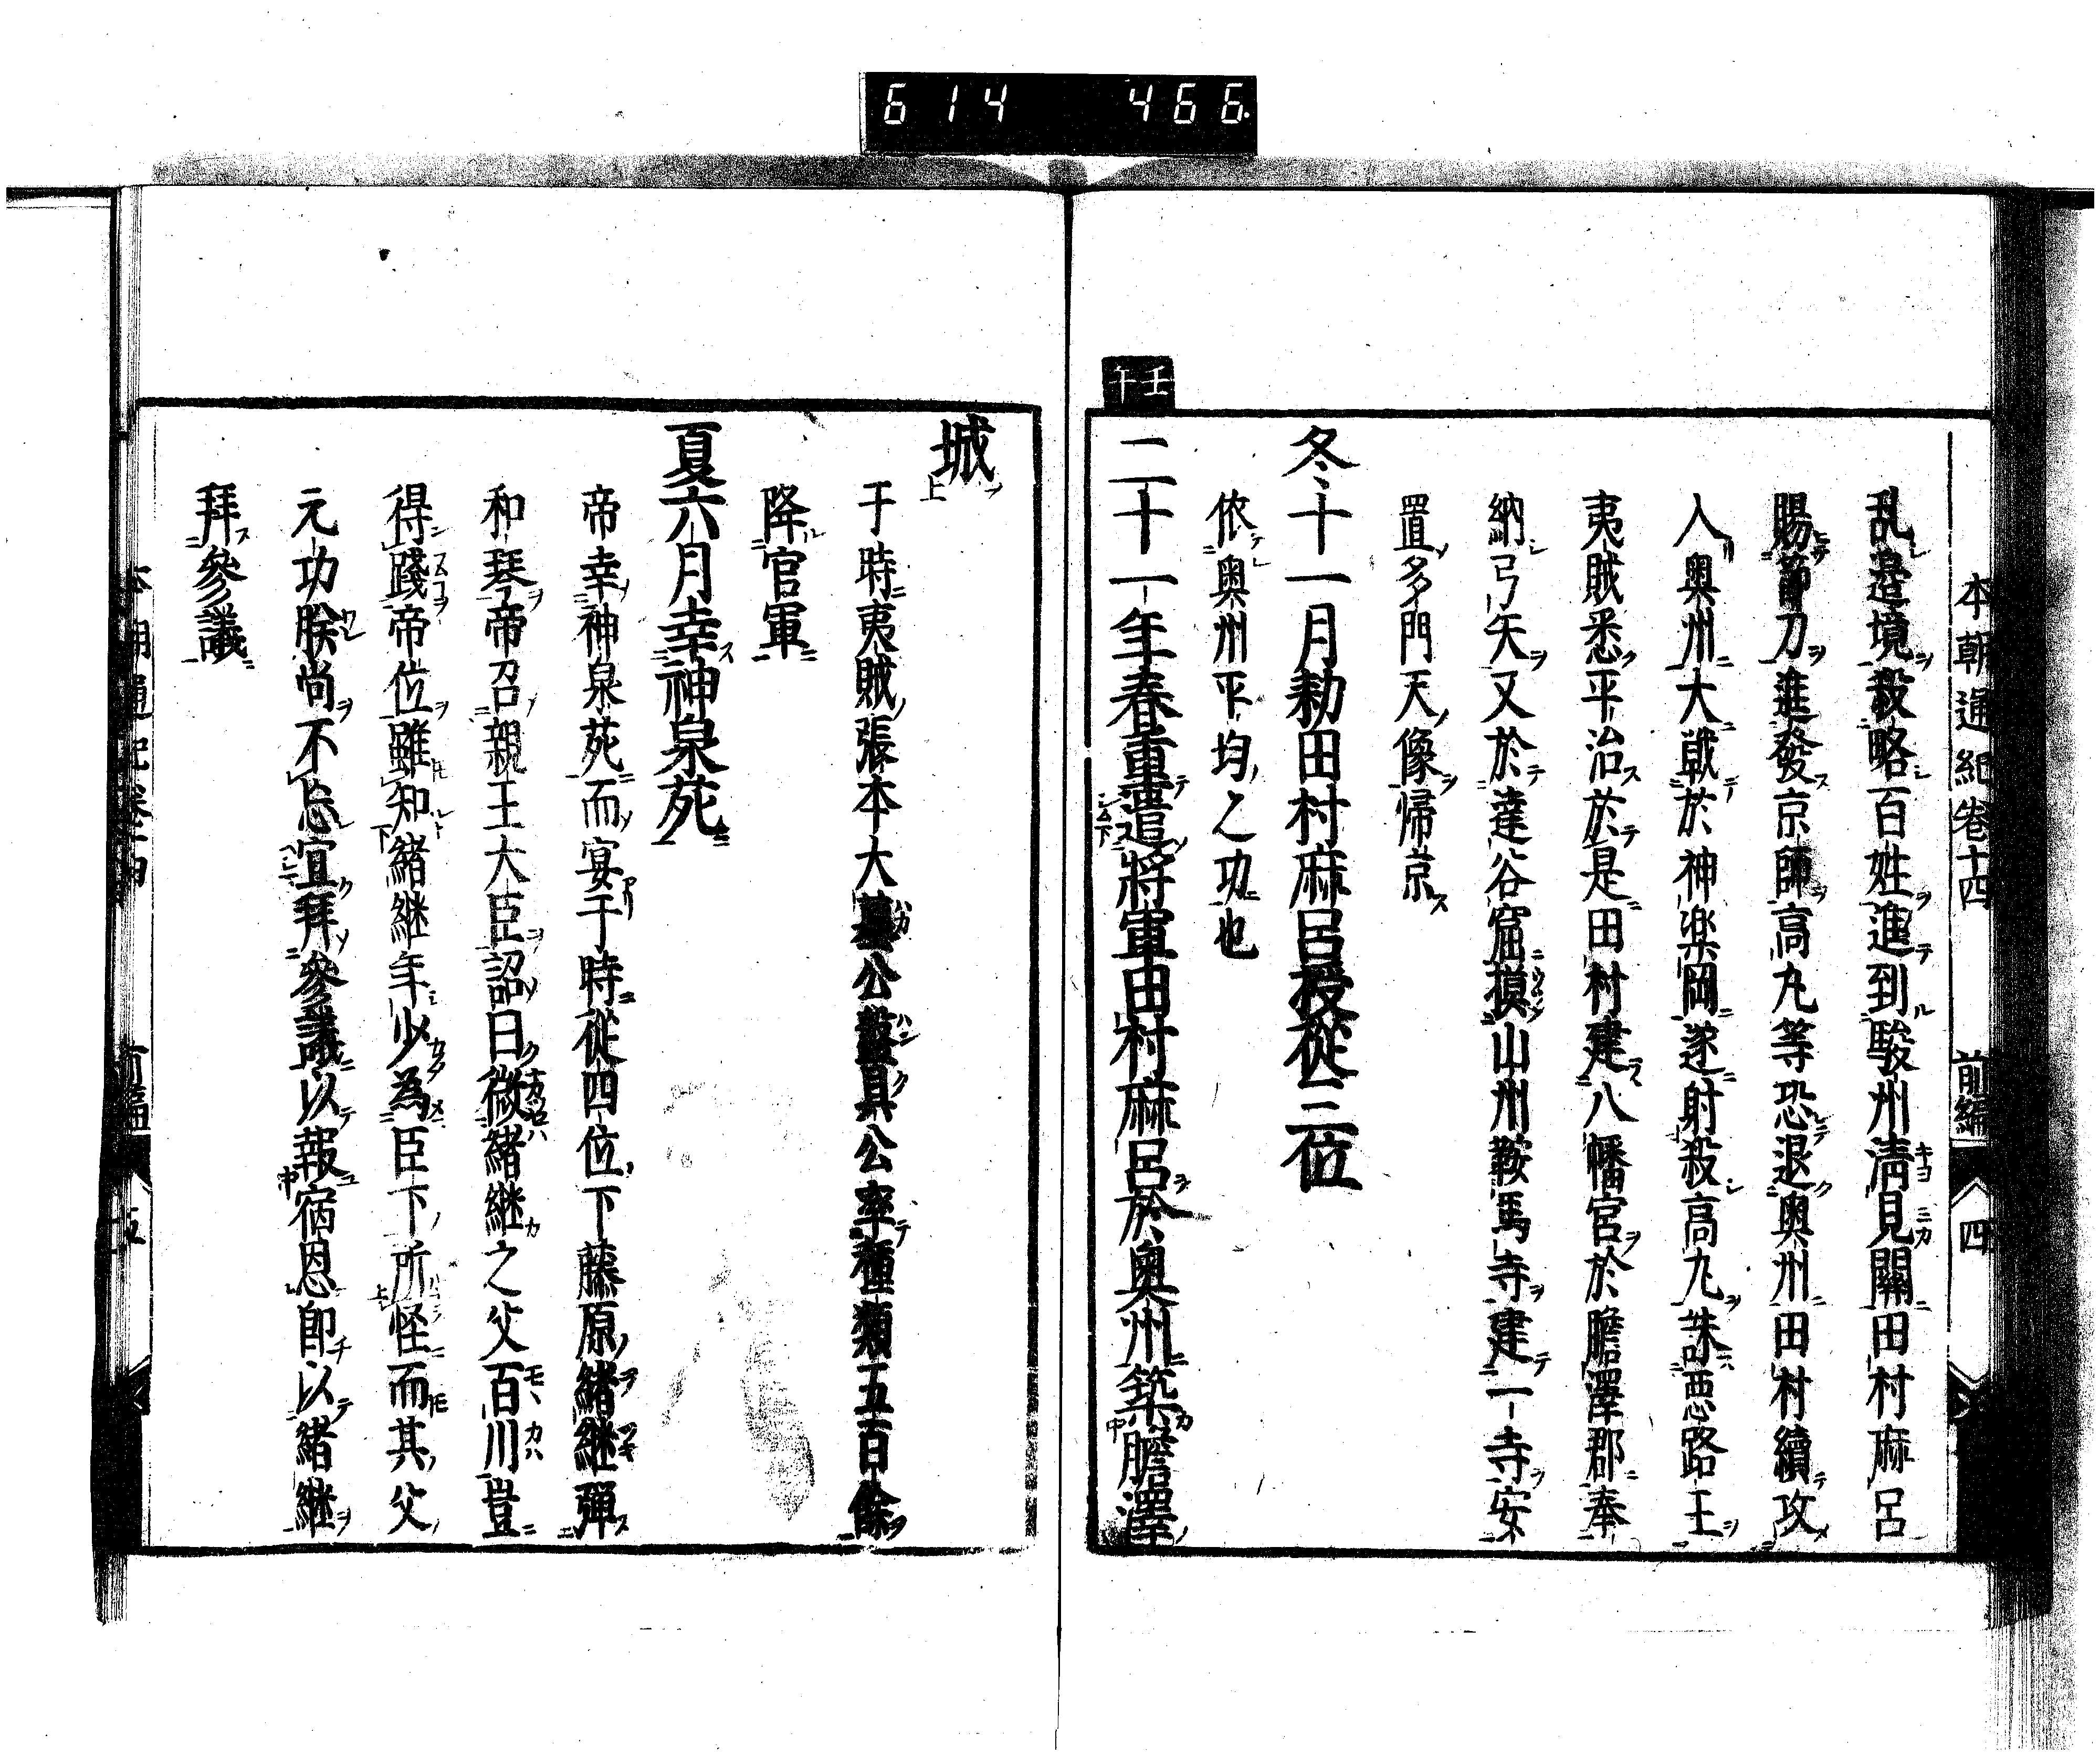 614 466.
本朝通紀巻十四 前編 四
乱邉境殺略百姓進到駿州清見關田村麻呂
賜節刀進發京師高丸等恐退奥州田村續攻
入奥州大戦於神楽岡遂射殺高丸誅悪路王
夷賊悉平治於是田村建八幡宮於膽澤郡奉
納弓矢又於達谷窟摸山州鞍馬寺建一寺安
置多門天像帰京
冬十一月勅田村麻呂授從三位
依奥州平均之功也
壬午
二十一年春重遣將軍田村麻呂於奥州築膽澤
城
于時夷賊張本大墓公盤具公率種類五百餘
降官軍
夏六月幸神泉苑
帝幸神泉苑而宴于時從四位下藤原緒継弾
和琴帝召親王大臣詔曰微緒継之父百川豈
得踐帝位雖知緒継年少為臣下所怪而其父
元功朕尚不忘宜拜參議以報宿恩即以緒継
拜參議